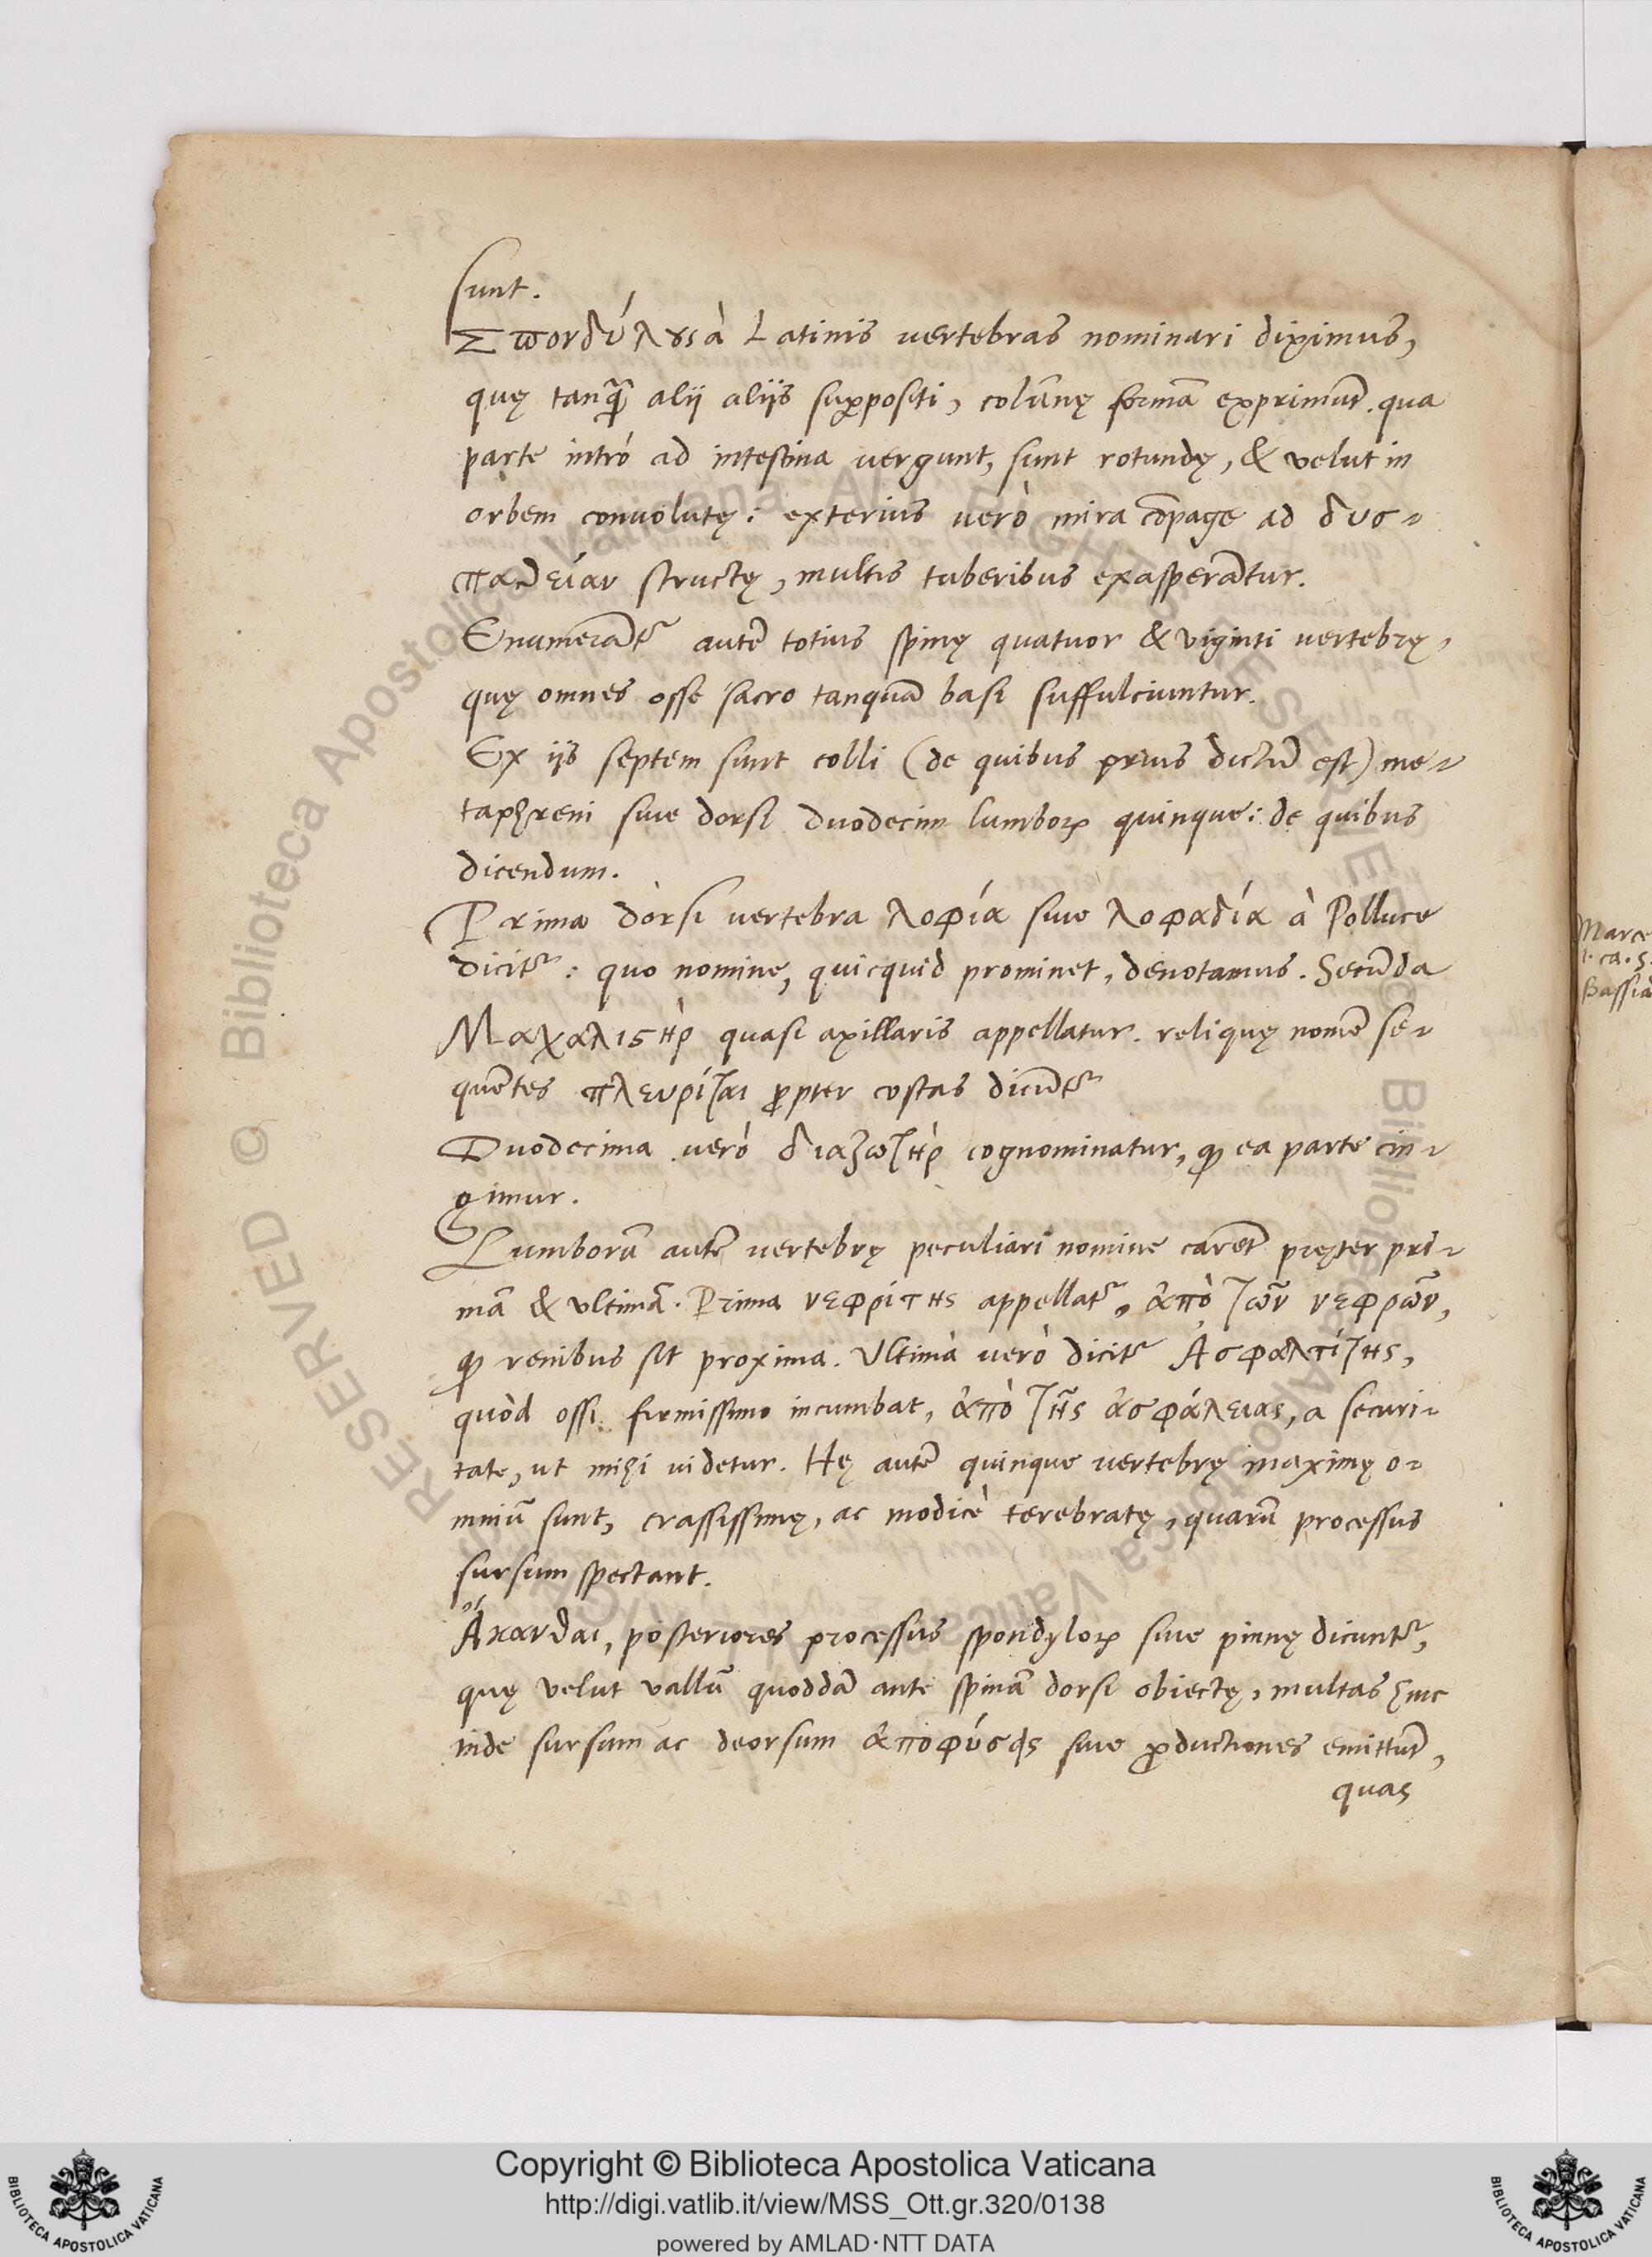 sunt.
Σπονδύλους à Latinis vertebras nominari diximus,
quę tanq̃ alij aliis suꝑpositi, colũnę formã exprimũt. qua
parte intró ad intestina vergunt, sunt rotundę, & velut in
orbem convolutę: exterius verò mira cõpage ad δυσ-
παθείαν structę, multis tuberibus exasperãtur.
Enumerãtr autẽ totius spinę quatuor & viginti vertebrę,
quę omnes osse sacro tanquã basi suffulciuntur.
Ex iis septem sunt colli (de quibus prius dictũ est) me-
taphreni sive dorsi duodecim lumboꝝ quinque: de quibus
dicendum.
Prima dorsi vertebra λοφία sive λοφαδία à Polluce
dicitr: quo nomine, quicquid prominet, denotamus. Secũda
Μαχαλιϛὴρ quasi axillaris appellatur. reliquę nomẽ se-
quẽtes πλευρίται ꝓpter costas dicũtr
Duodecima verò διαζωτὴρ cognominatur, ꝙ ea parte cin-
gimur.
Lumborũ autẽ vertebrę peculiari nomine carẽt pręter pri-
mã & ultimã. Prima νεφρίτης appellatr, ἀπὸ τῶν νεφρῶν,
ꝙ renibus sit proxima. Ultima verò dicitr Ασφαλτίτης,
quòd ossi firmissimo incumbat, ἀπὸ τῆς ἀσφάλειας, a securi-
tate, ut mihi videtur. Hę autẽ quinque vertebrę maximę o-
mniũ sunt, crassissimę, ac modicè terebratę, quarũ processus
sursum spectant.
Ἄκανθαι, posteriores processus spondyloꝝ sive pinnę dicuntr,
quę velut vallũ quoddã ante spinã dorsi obiectę, multas hinc
inde sursum ac deorsum ἀποφύσεις sive ꝓductiones emittũt,
quas
Marce
1. ca. 5.
Bassia
Copyright © Biblioteca Apostolica Vaticana
http://digi.vatlib.it/view/MSS_Ott.gr.320/0138
powered by AMLAD·NTT DATA
BIBLIOTECA APOSTOLICA VATICANA
BIBLIOTECA APOSTOLICA VATICANA